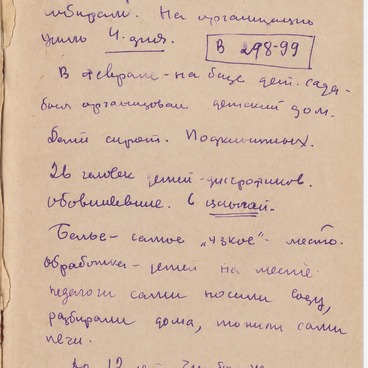 собирали. На организацию
ушло 4 дня.
В 298-99
В феврале - на базе дет. сада -
был организован детский дом.
Дети сирот. Подкинутых.
26 человек детей-дистрофиков.
обовшивевшие.
Белье - самое „узкое" - место.
обработка - детей на месте
педагоги сами носили воду,
разбирали дома, топили сами
печи.